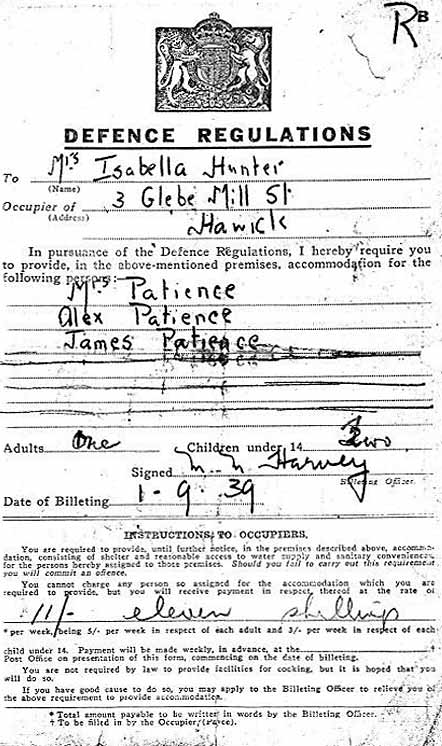 RB
DEFENCE REGULATIONS
To Mrs Isabella Hunter
(Name)
Occupier of 3 Glebe Mill St
(Address)
Hawick
In pursuance of the Defence Regulations, I hereby require you
to provide, in the above-mentioned premises, accommodation for the
following persons:—
Mrs Patience
Alex Patience
James Patience
Adults One Children under 14 Two
Signed Harvey
Billeting Officer.
Date of Billeting 1 - 9 - 39
INSTRUCTIONS TO OCCUPIERS.
You are required to provide, until further notice, in the premises described above, accommo-
dation, consisting of shelter and reasonable access to water supply and sanitary conveniences,
for the persons hereby assigned to those premises. Should you fail to carry out this requirement
you will commit an offence.
You cannot charge any person so assigned for the accommodation which you are
required to provide, but you will receive payment in respect thereof at the rate of
11/- eleven shillings *
* per week, being 5/- per week in respect of each adult and 3/- per week in respect of each
child under 14. Payment will be made weekly, in advance, at the †
Post Office on presentation of this form, commencing on the date of billeting.
You are not required by law to provide facilities for cooking, but it is hoped that you
will do so.
If you have good cause to do so, you may apply to the Billeting Officer to relieve you of
the above requirement to provide accommodation.
* Total amount payable to be written in words by the Billeting Officer.
† To be filled in by the Occupier (Payee).